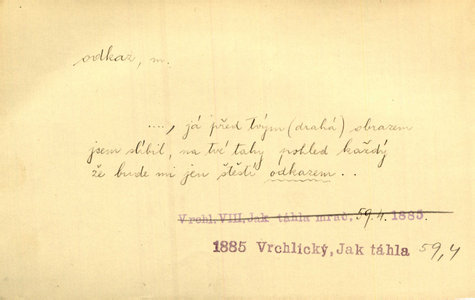 odkaz, m.
...., já před tvým (drahá) obrazem
jsem slíbil, na tvé tahy pohled každý
že bude mi jen štěstí odkazem ..
Vrchl. VIII, Jak táhla mrač, 59.4. 1885.
1885 Vrchlický, Jak táhla 59,4